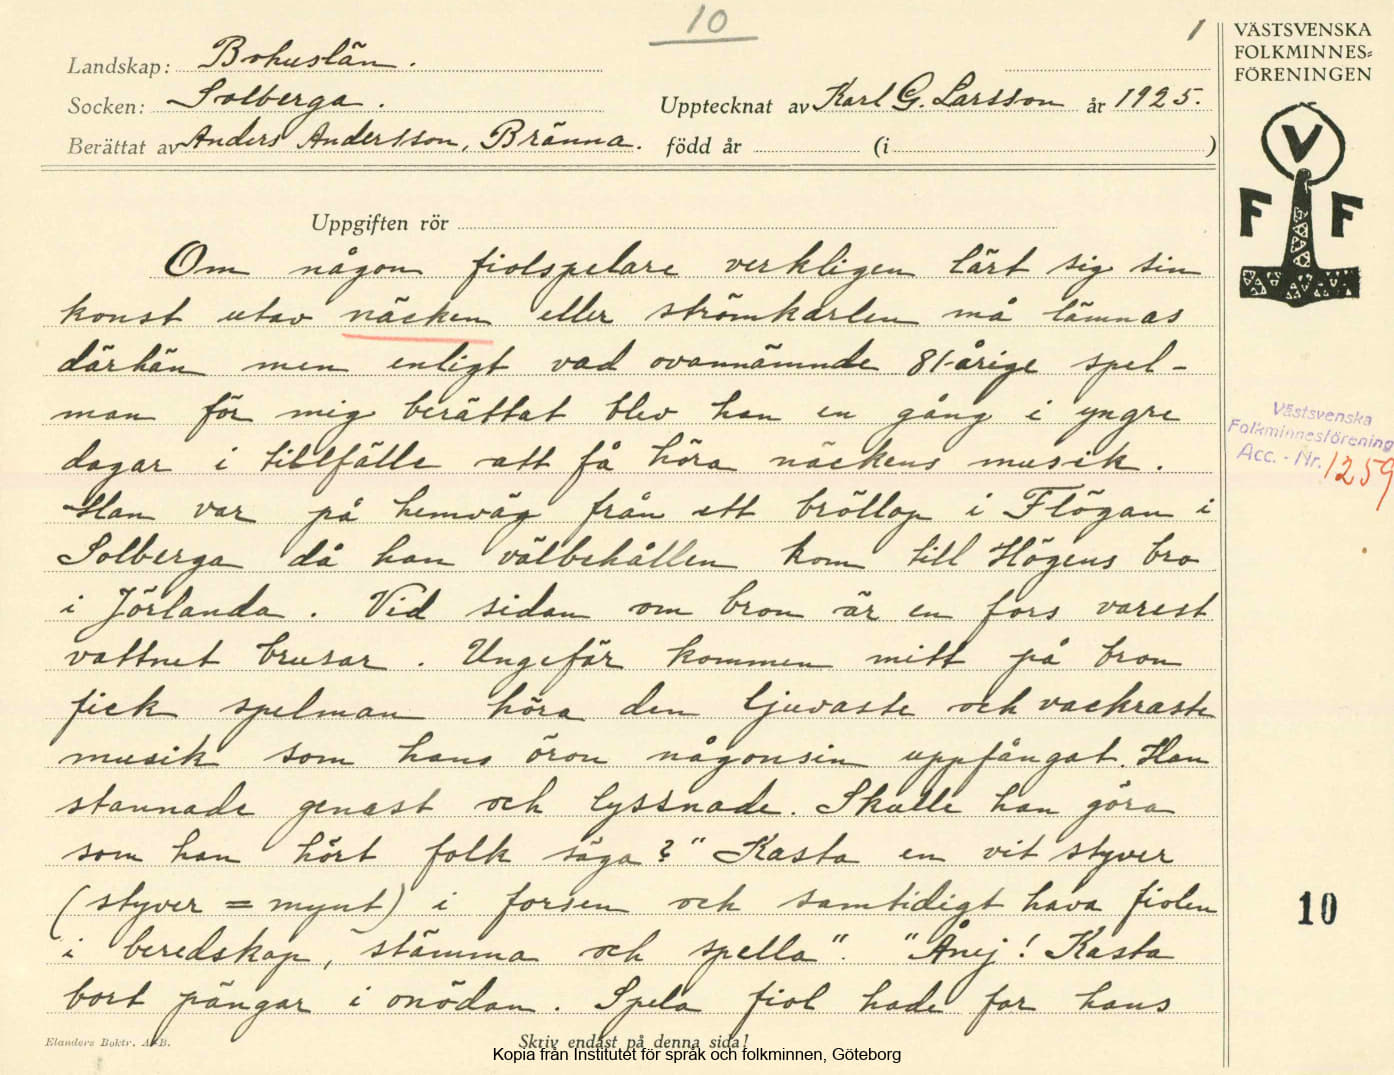 10
1
Landskap: Bohuslän.
Socken: Solberga.
Upptecknat av Karl G. Larsson år 1925.
Berättat av Anders Andersson, Bränna. född år (i )
Uppgiften rör
Om någon fiolspelare verkligen lärt sig sin
konst utav näcken eller strömkarlen må lämnas
därhän men enligt vad ovannämnde 81-årige spel-
man för mig berättat blev han en gång i yngre
dagar i tillfälle att få höra näckens musik.
Han var på hemväg från ett bröllop i Flögan i
Solberga då han välbehållen kom till Högens bro
i Jörlanda. Vid sidan om bron är en fors varest
vattnet brusar. Ungefär kommen mitt på bron
fick spelman höra den ljuvaste och vackraste
musik som hans öron någonsin uppfångat. Han
stannade genast och lyssnade. Skulle han göra
som han hört folk säga? "Kasta en vit styver
(styver = mynt) i forsen och samtidigt hava fiolen
i beredskap, stämma och spella". "Ånej! Kasta
bort pängar i onödan. Spela fiol hade far hans
Elanders Boktr. A.-B.
Skriv endast på denna sida!
Kopia från Institutet för språk och folkminnen, Göteborg
VÄSTSVENSKA
FOLKMINNES-
FÖRENINGEN
V
F F
Västsvenska
Folkminnesförening
Acc. - Nr. 1259
10